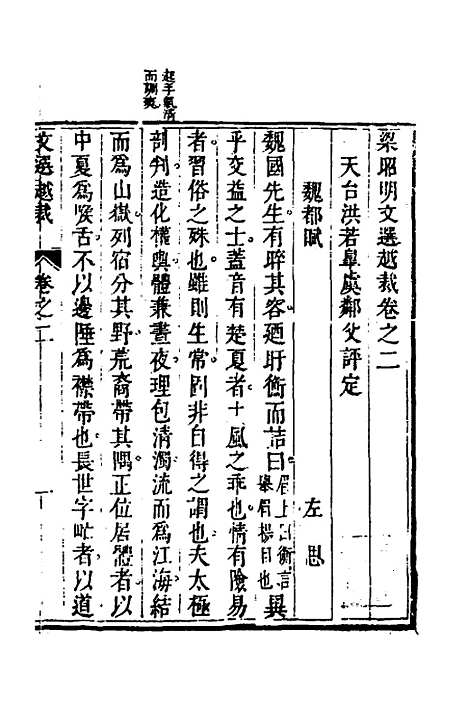 梁昭明文選越裁卷之二
天台洪若臯虞鄰父評定
魏都賦　左思
魏國先生有睟其容廼盱衡而詰曰眉上曰衡言舉眉揚目也異
乎交益之士蓋音有楚夏者土風之乖也情有險易
者習俗之殊也雖則生常固非自得之謂也夫太極
剖判造化權輿體兼晝夜理包清濁流而爲江海結
而爲山嶽列宿分其野荒裔帶其隅正位居體者以
中夏爲喉舌不以邊陲爲襟帶也長世字甿者以道
起手氣清
而調爽
文選越裁　卷之二　一